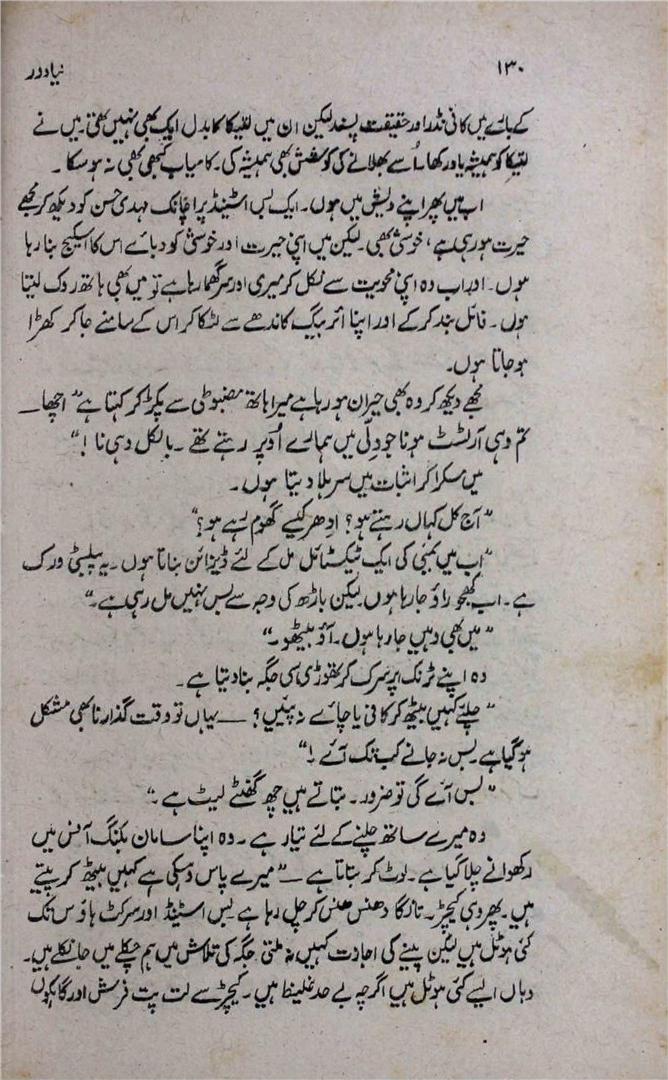 ۱۳۰ نیا دور
کے بارے میں کافی نڈر اور حقیقت پسند لیکن ان میں لتیکا کا بدل ایک بھی نہیں تھی۔ میں نے
لتیکا کو ہمیشہ یاد رکھا۔ اُسے بھلانے کی کوشش بھی ہمیشہ کی۔ کامیاب کبھی بھی نہ ہو سکا۔
اب میں پھر اپنے دیش میں ہوں۔ ایک بس اسٹینڈ پر اچانک مہدی حسن کو دیکھ کر مجھے
حیرت ہو رہی ہے، خوشی بھی۔ لیکن میں اپنی حیرت اور خوشی کو دبائے اس کا اسکیچ بنا رہا
ہوں۔ اور اب وہ اپنی محویت سے نکل کر میری اور سر گھما رہا ہے تو میں بھی ہاتھ روک لیتا
ہوں۔ فائل بند کرکے اور اپنا ائر بیگ کاندھے سے لٹکا کر اس کے سامنے جا کر کھڑا
ہو جاتا ہوں۔
مجھے دیکھ کر وہ بھی حیران ہو رہا ہے میرا ہاتھ مضبوطی سے پکڑ کر کہتا ہے "اچھا—
تم وہی آرٹسٹ ہو نا جو دلّی میں ہمارے اُوپر رہتے تھے۔ بالکل وہی نا!"
میں مسکرا کر اثبات میں سر ہلا دیتا ہوں۔
"آج کل کہاں رہتے ہو؟ ادھر کیسے گھوم رہے ہو؟"
"اب میں بمبئی کی ایک ٹیکسٹائل مل کے لئے ڈیزائن بناتا ہوں۔ یہ پبلسٹی ورک
ہے۔ اب کھجوراؤ جا رہا ہوں۔ لیکن باڑھ کی وجہ سے بس نہیں مل رہی ہے۔"
"میں بھی وہیں جا رہا ہوں۔ آؤ بیٹھو۔"
وہ اپنے ٹرنک پر سرک کر تھوڑی سی جگہ بنا دیتا ہے۔
"چلئے کہیں بیٹھ کر کافی یا چائے نہ پئیں؟ — یہاں تو وقت گذارنا بھی مشکل
ہو گیا ہے۔ بس نہ جانے کب تک آئے!"
"بس آئے گی تو ضرور۔ بتاتے ہیں چھ گھنٹے لیٹ ہے۔"
وہ میرے ساتھ چلنے کے لئے تیار ہے۔ وہ اپنا سامان بکنگ آفس میں
رکھوانے چلا گیا ہے۔ لوٹ کر بتاتا ہے — "میرے پاس وہسکی ہے کہیں بیٹھ کر پیتے
ہیں۔ پھر وہی کیچڑ۔ تانگا دھنس دھنس کر چل رہا ہے بس اسٹینڈ اور سرکٹ ہاؤس تک
کئی ہوٹل ہیں لیکن پینے کی اجازت کہیں نہ ملتی جگہ کی تلاش میں ہم چکلے میں جا نکلے ہیں۔
وہاں ایسے کئی ہوٹل ہیں اگرچہ بے حد غلیظ ہیں۔ کیچڑ سے لت پت فرش اور گاہکوں